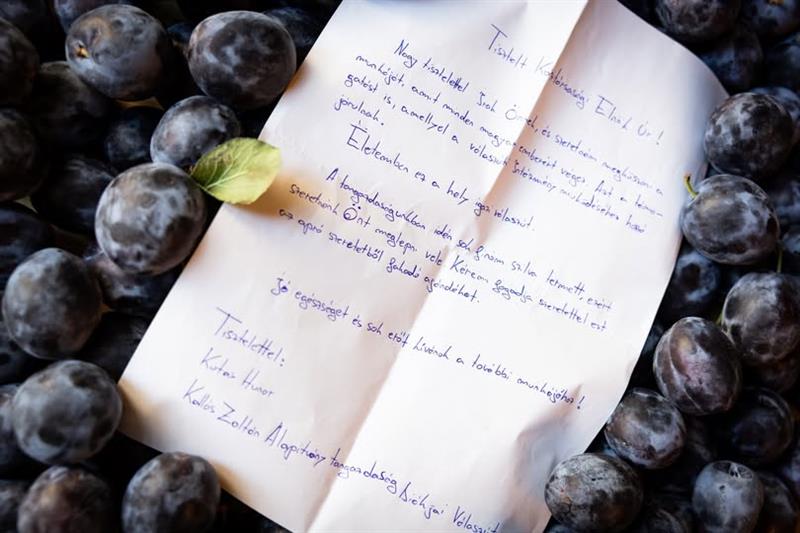 Tisztelt Köztársasági Elnök Úr!
Nagy tisztelettel írok Önnek, és szeretném megköszönni a
munkáját, amit minden magyar emberért végez. Azt a támo-
gatást is, amellyel a válaszúti intézmény működéséhez hozzá
járulnak.
Életemben ez a hely igazi válaszút.
A tangazdaságunkban idén sok finom szilva termett, ezért
szeretnénk Önt meglepni vele. Kérem fogadja szeretettel ezt
az apró szeretetből fakadó ajándékot.
Jó egészséget és sok erőt kívánok a további munkájához!
Tisztelettel:
Kutas Hunor
Kallós Zoltán Alapítvány tangazdaság diákjai Válaszút